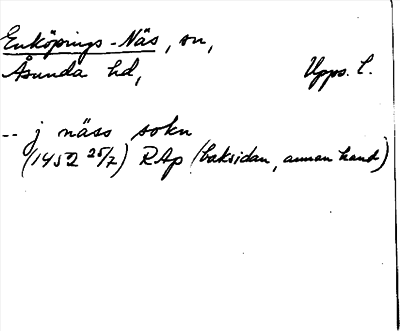 Enköpings-Näs, sn,
Åsunda hd, Upps. l.
-- j näss sokn
(1452 25/7) RAp (baksidan, annan hand)